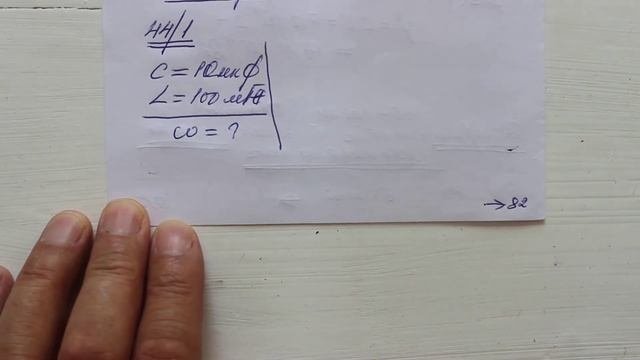 44/1
C = 10мкФ
L = 100мГн
ω = ?
→ 82